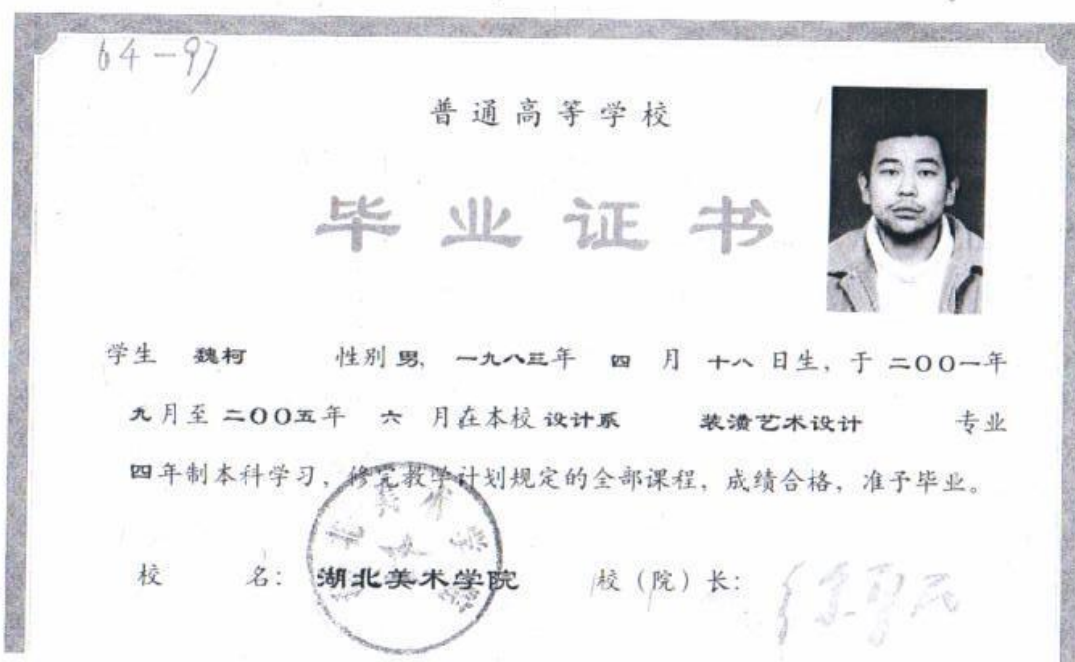 64-97
普通高等学校
毕业证书
学生 魏柯 性别 男, 一九八三年 四 月 十八 日生, 于 二〇〇一年
九月至 二〇〇五年 六 月在本校 设计系 装潢艺术设计 专业
四年制本科学习, 修完教学计划规定的全部课程, 成绩合格, 准予毕业。
校 名: 湖北美术学院 校(院)长: